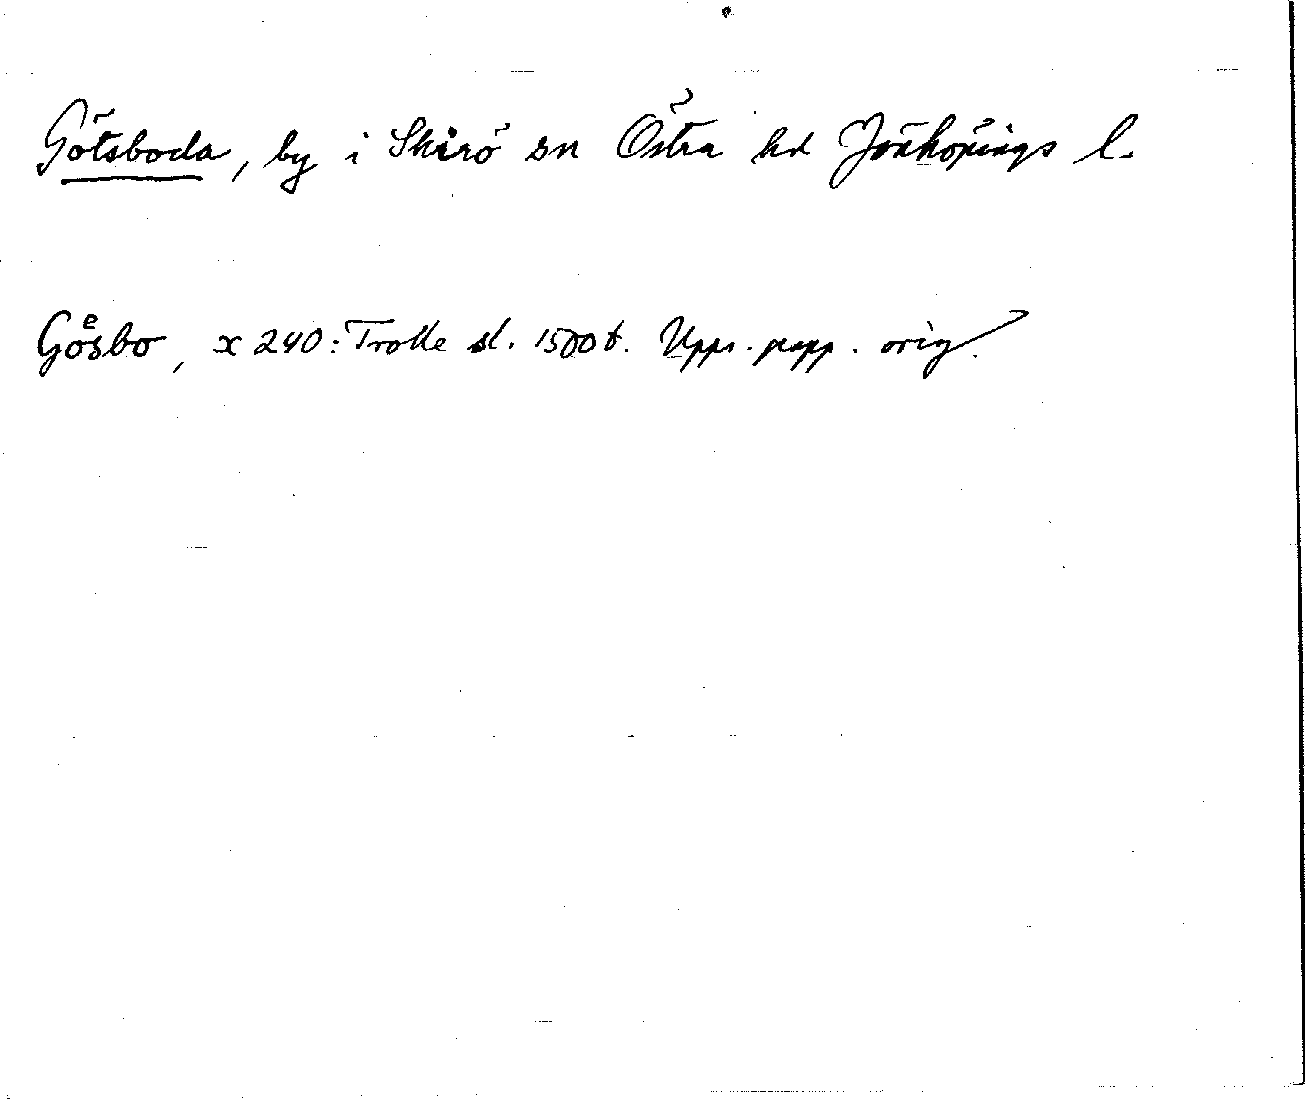 Götsboda, by i Skirö sn Östra hd Jönköpings l.
Goͤsbo, x 240: Trolle sl. 1500 t. Upps. papp. orig.